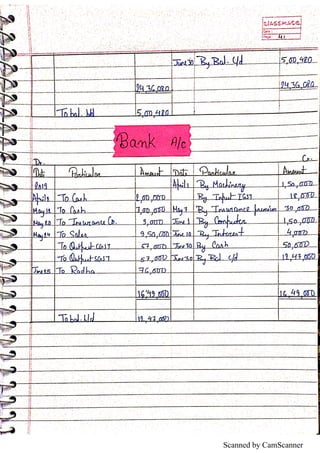 CLASSMATE
Date :
Page : 41
June 30 By Bal. c/d 5,00,480
24,36,080 24,36,080
To bal. b/d 5,00,480
Bank A/c
Dr. Cr.
Date Particular Amount Date Particular Amount
2019 April 1 By Machinery 1,50,000
April 2 To Cash 2,00,000 By Input IGST 18,000
May 18 To Cash 3,00,000 May 3 By Insurance premium 30,000
May 20 To Insurance Co. 9,000 June 1 By Computer 1,50,000
May 24 To Sales 9,50,000 June 10 By Interest 4,000
To Output CGST 57,000 June 30 By Cash 50,000
To Output SGST 57,000 June 30 By Bal. c/d 12,47,000
June 25 To Radha 76,000
16,49,000 16,49,000
To bal. b/d 12,47,000
Scanned by CamScanner